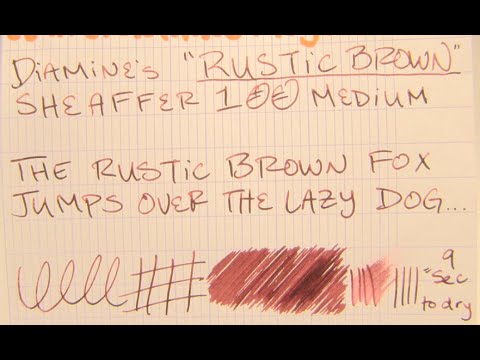 DIAMINE'S "RUSTIC BROWN"
SHEAFFER 100 MEDIUM
THE RUSTIC BROWN FOX
JUMPS OVER THE LAZY DOG...
9
Sec
to dry